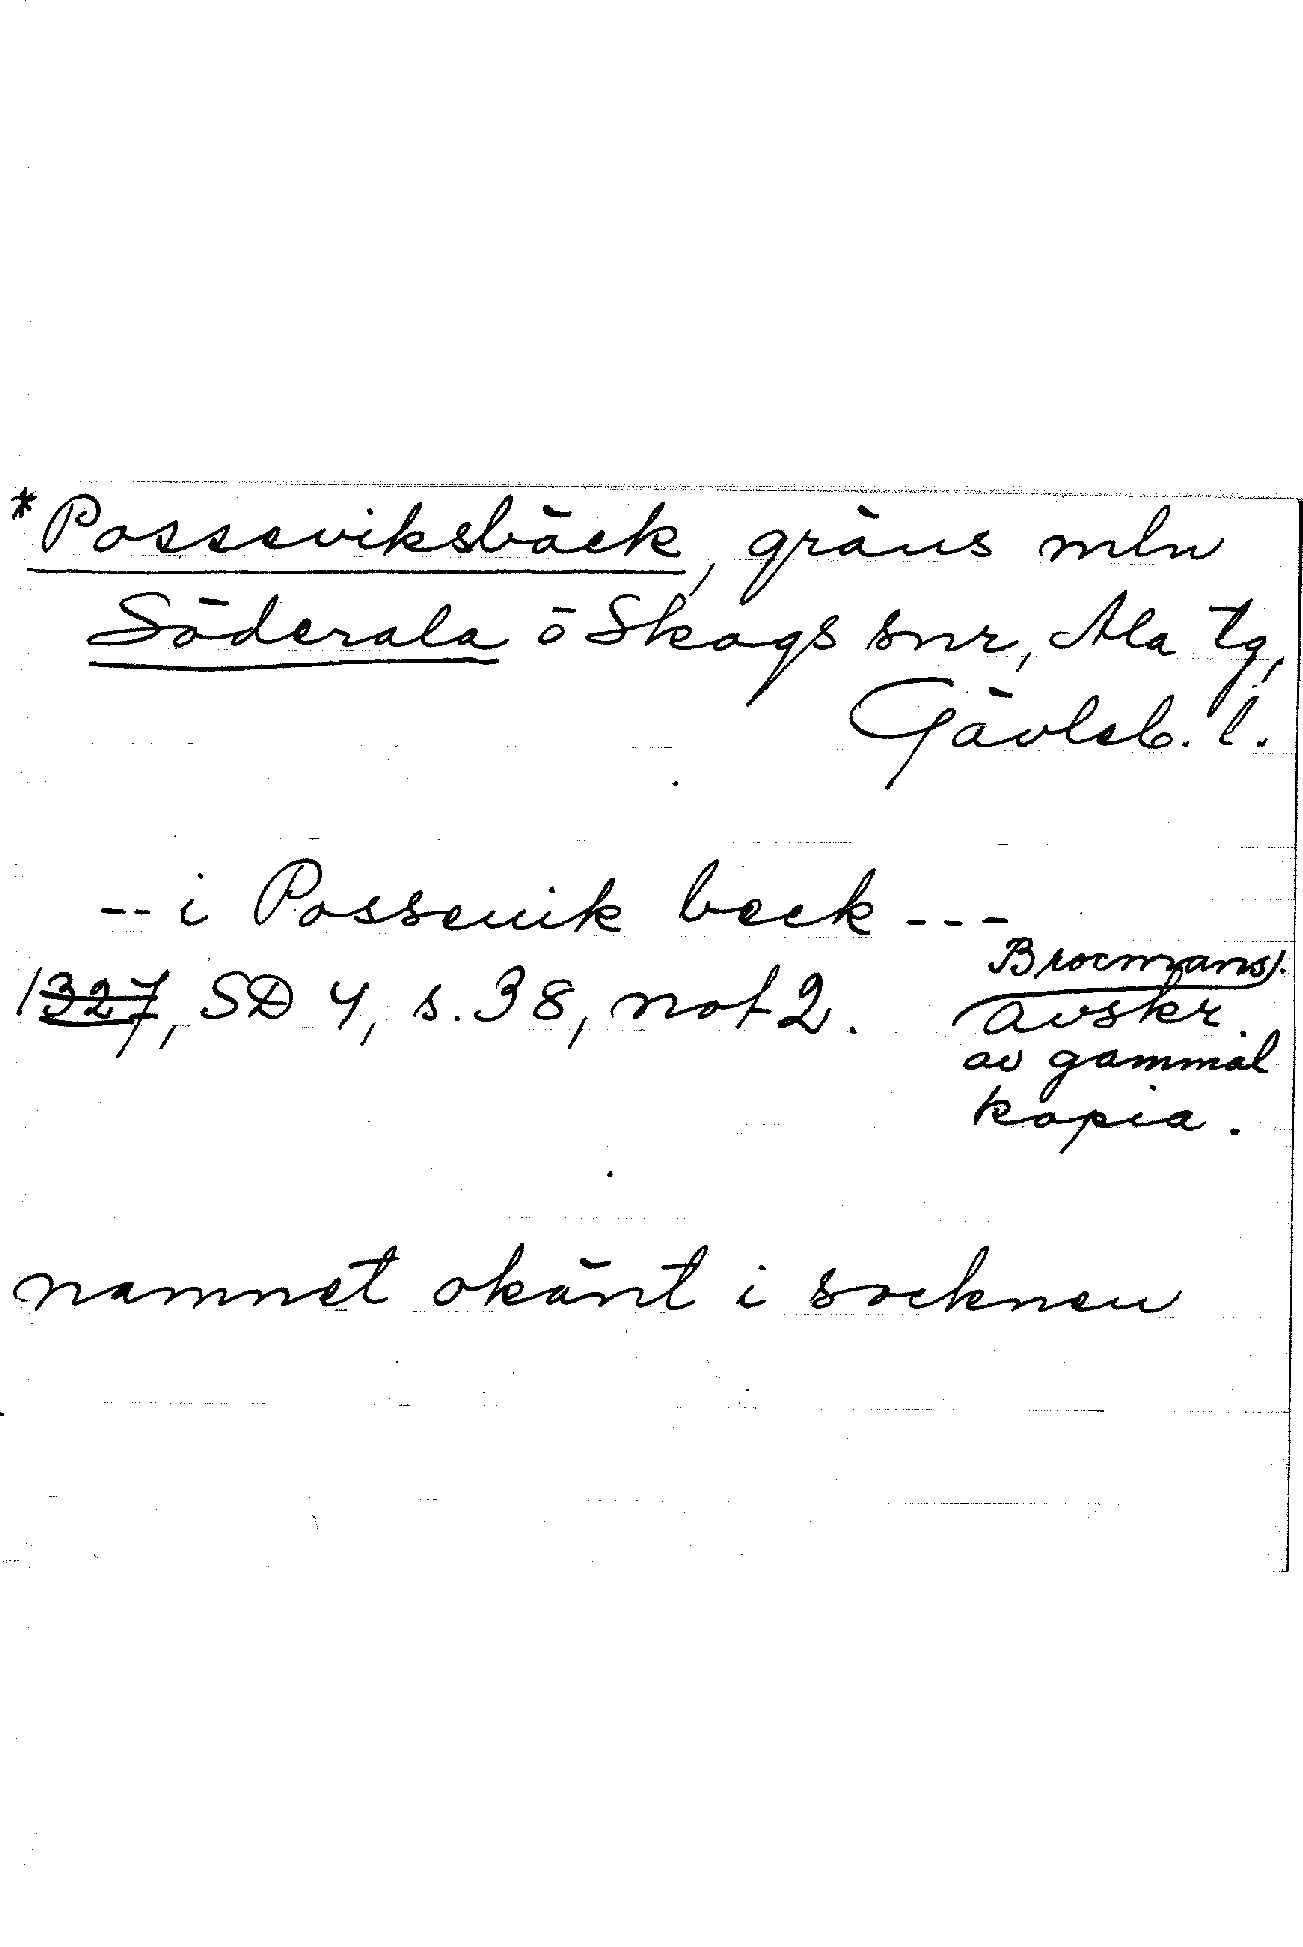 *Posseviksbäck, gräns mln
Söderala o Skogs snr, Ala tg,
Gävleb. l.
-- i Posseuik beck ---
1327, SD 4, s. 38, not 2.
Brocmans
avskr.
av gammal
kopia.
namnet okänt i socknen